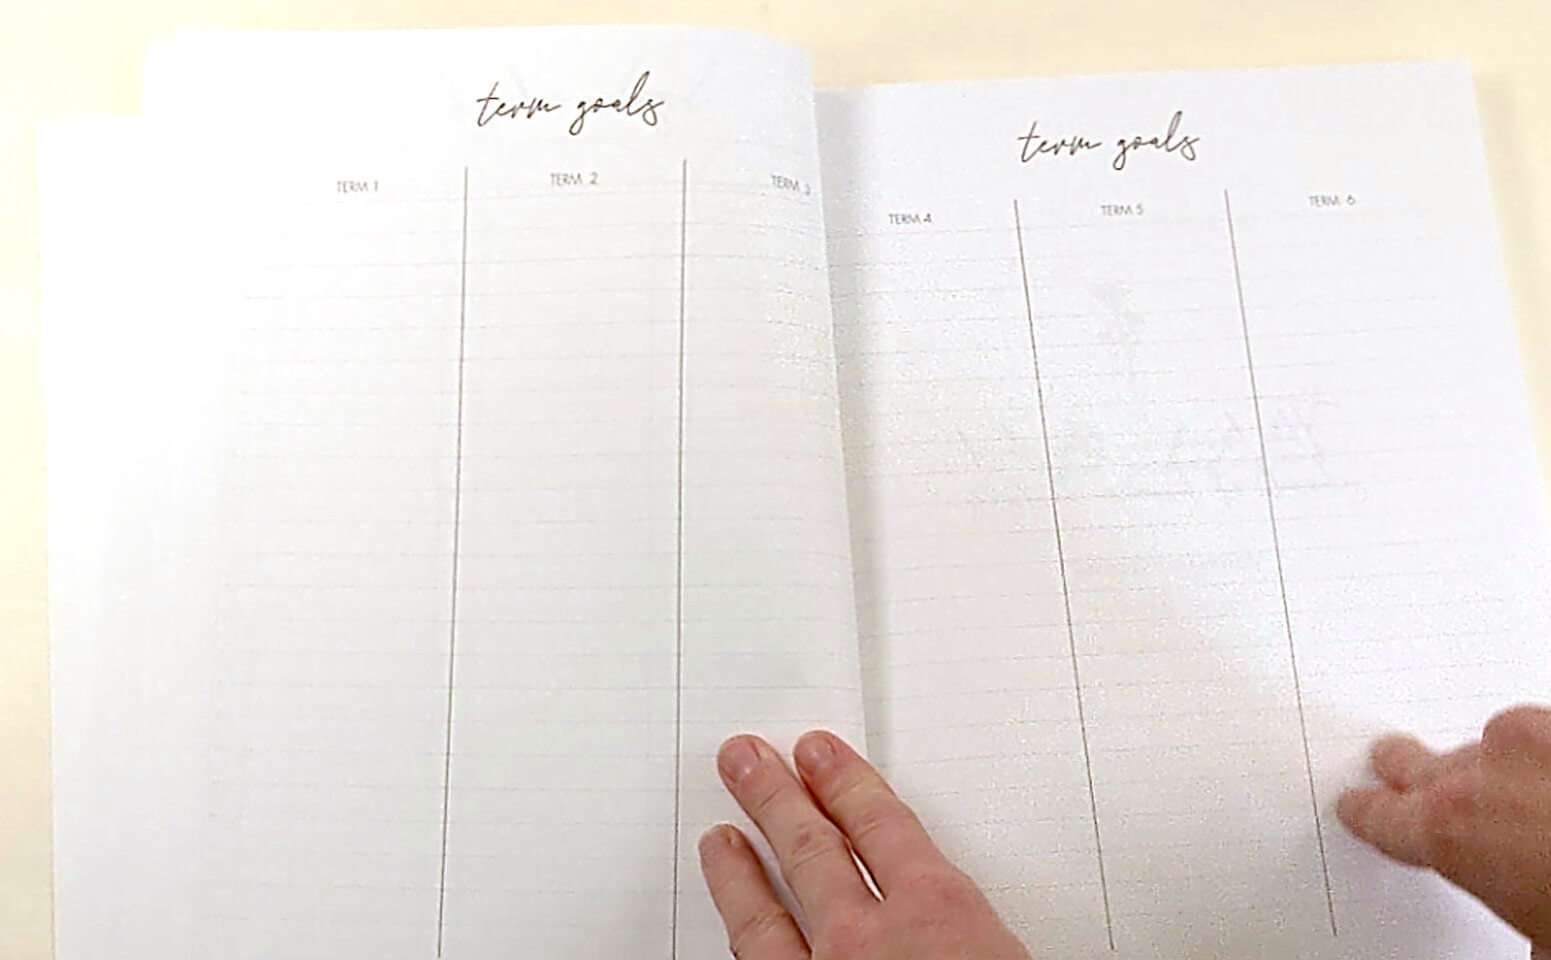 term goals
TERM 1 TERM 2 TERM 3
term goals
TERM 4 TERM 5 TERM 6